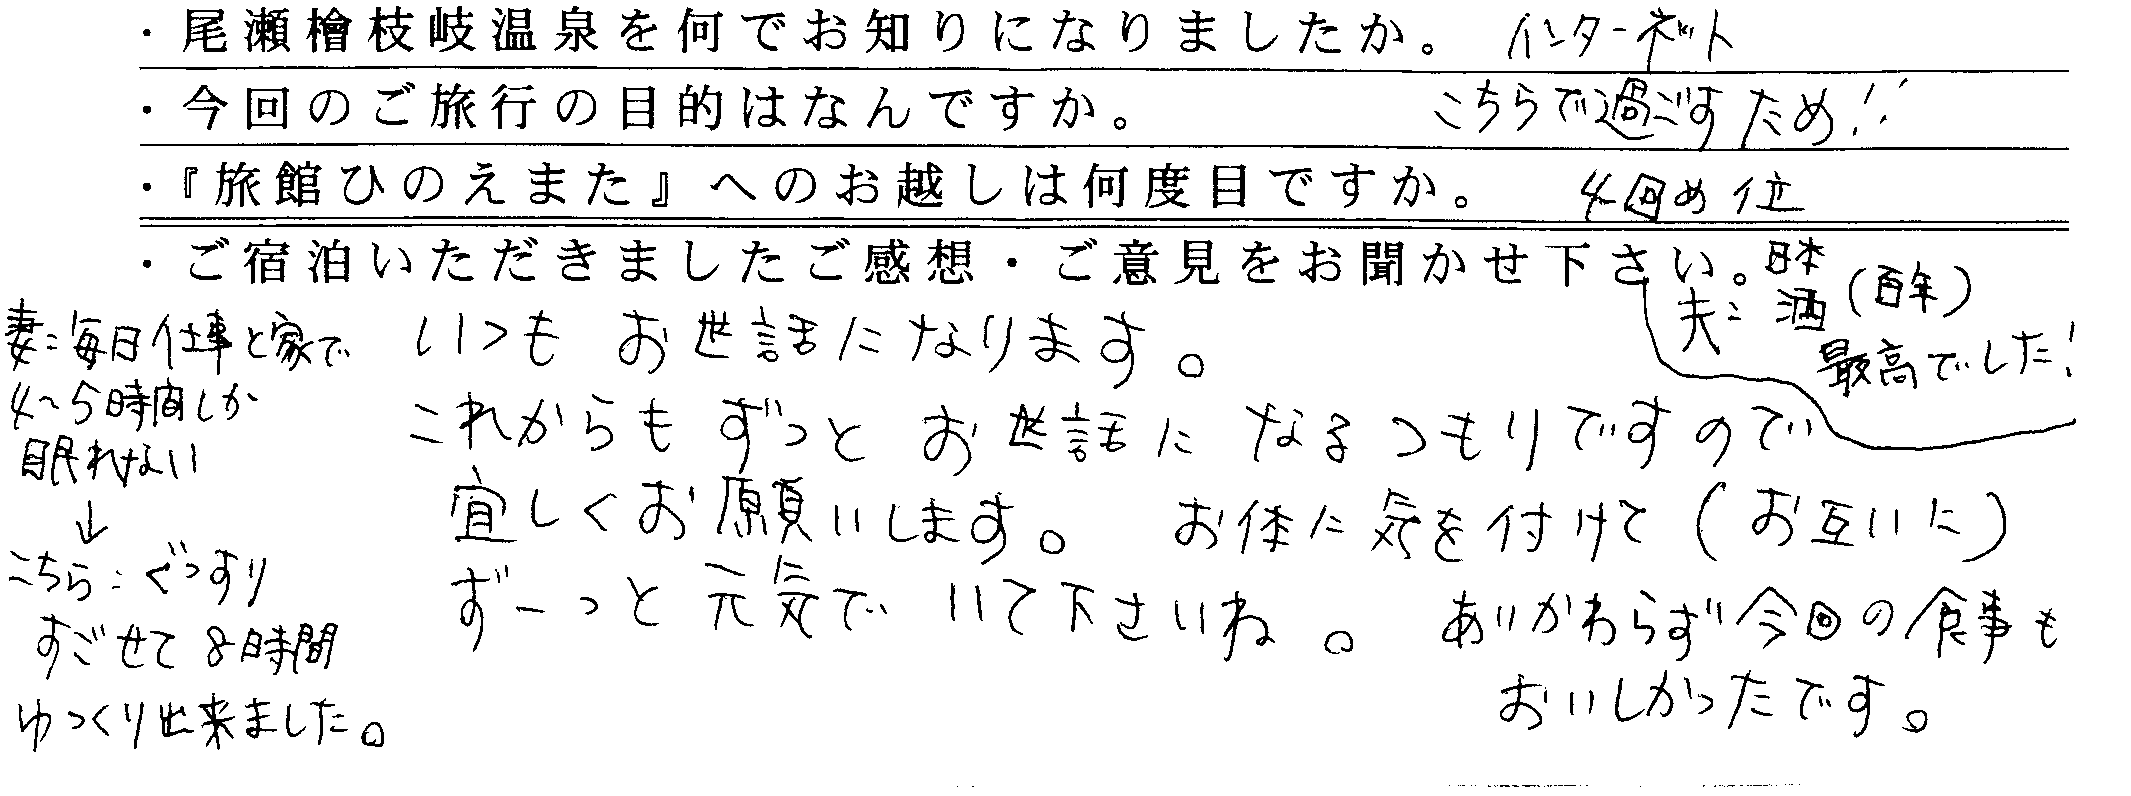 ・尾瀬檜枝岐温泉を何でお知りになりましたか。 インターネット
・今回のご旅行の目的はなんですか。 こちらで過ごすため!!
・『旅館ひのえまた』へのお越しは何度目ですか。 4回め位
・ご宿泊いただきましたご感想・ご意見をお聞かせ下さい。
夫:日本酒(百年)
最高でした!
妻:毎日仕事と家で
4〜5時間しか
眠れない
↓
こちら:ぐっすり
すごせて8時間
ゆっくり出来ました。
いつもお世話になります。
これからもずっとお世話になるつもりですので
宜しくお願いします。 お体に気を付けて(お互いに)
ずーっと元気でいて下さいね。 あいかわらず今回の食事も
おいしかったです。